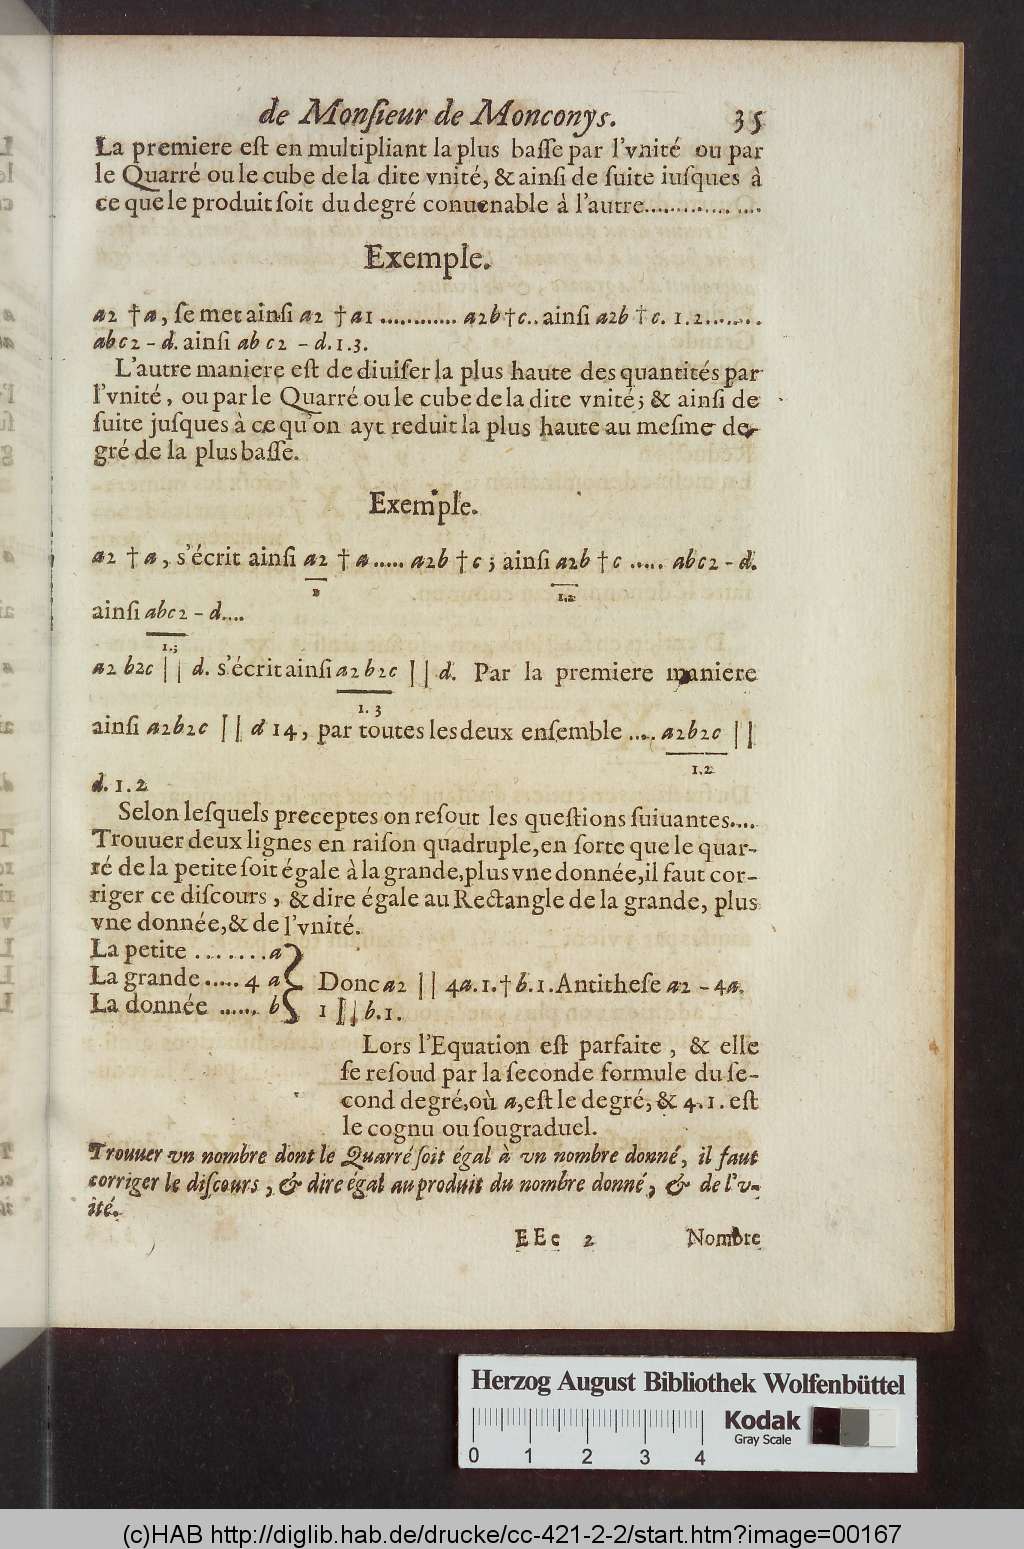 de Monſieur de Monconys. 35
La premiere eſt en multipliant la plus baſſe par l'vnité ou par
le Quarré ou le cube de la dite vnité, & ainſi de ſuite iuſques à
ce que le produit ſoit du degré conuenable à l'autre................
Exemple.
a2 † a, ſe met ainſi a2 † a1 ............ a2b † c.. ainſi a2b † c. 1. 2........
abc2 - d. ainſi ab c2 - d. 1. 3.
L'autre maniere eſt de diuiſer la plus haute des quantités par
l'vnité, ou par le Quarré ou le cube de la dite vnité; & ainſi de
ſuite juſques à ce qu'on ayt reduit la plus haute au meſme de-
gré de la plus baſſe.
Exemple.
a2 † a, s'écrit ainſi a2 † a..... a2b † c; ainſi a2b † c ..... abc2 - d.
1.2
ainſi abc2 - d....
1.3
a2 b2c || d. s'écrit ainſi a2b2c || d. Par la premiere maniere
1. 3
ainſi a2b2c || d 14, par toutes les deux enſemble .... a2b2c ||
1.2
d. 1. 2
Selon leſquels preceptes on reſout les queſtions ſuiuantes....
Trouuer deux lignes en raiſon quadruple, en ſorte que le quar-
ré de la petite ſoit égale à la grande, plus vne donnée, il faut cor-
riger ce diſcours, & dire égale au Rectangle de la grande, plus
vne donnée, & de l'vnité.
La petite ....... a
La grande ..... 4 a } Donc a2 || 4a. 1. † b. 1. Antitheſe a2 - 4a.
La donnée ...... b 1 || b. 1.
Lors l'Equation eſt parfaite, & elle
ſe reſoud par la ſeconde formule du ſe-
cond degré, où a, eſt le degré, & 4. 1. eſt
le cognu ou ſougraduel.
Trouuer vn nombre dont le Quarré ſoit égal à vn nombre donné, il faut
corriger le diſcours, & dire égal au produit du nombre donné, & de l'v-
ité.
EEe 2 Nombre
Herzog August Bibliothek Wolfenbüttel
0 1 2 3 4
Kodak
Gray Scale
(c)HAB http://diglib.hab.de/drucke/cc-421-2-2/start.htm?image=00167